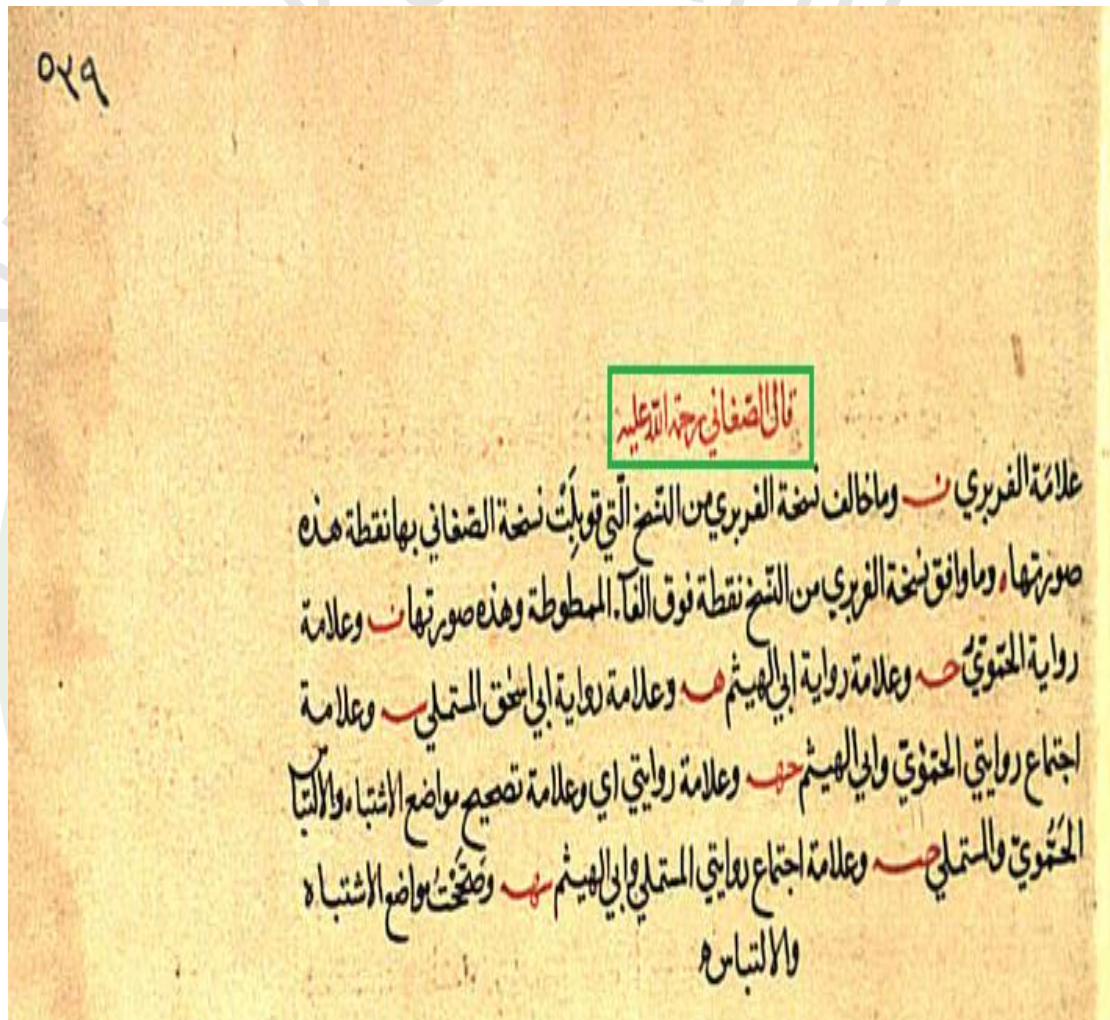 ٥٢٩
قال الصغاني رحمة الله عليه
علامة الفربري ف وما خالف نسخة الفربري من النسخ الّتي قوبِلَتْ نسخة الصغاني بها نقطة هذه
صورتها ۰ وما وافق نسخة الفربري من النسخ نقطة فوق الفآء الممطوطة وهذه صورتها ف وعلامة
رواية الحَمّوُيّ حـ وعلامة رواية ابي الهيثم هـ وعلامة رواية ابي اسحق المستملي سـ وعلامة
اجتماع روايتي الحَمّوُيّ وابي الهيثم حهـ وعلامة روايتي اي وعلامة تصحيح مواضع الاشتباه والالتباس
الحَمُّوِيّ والمستملي حسـ وعلامة اجتماع روايتي المستملي وابي الهيثم سهـ وصَحَّحْتُ مواضع الاشتباه
والالتباس ه